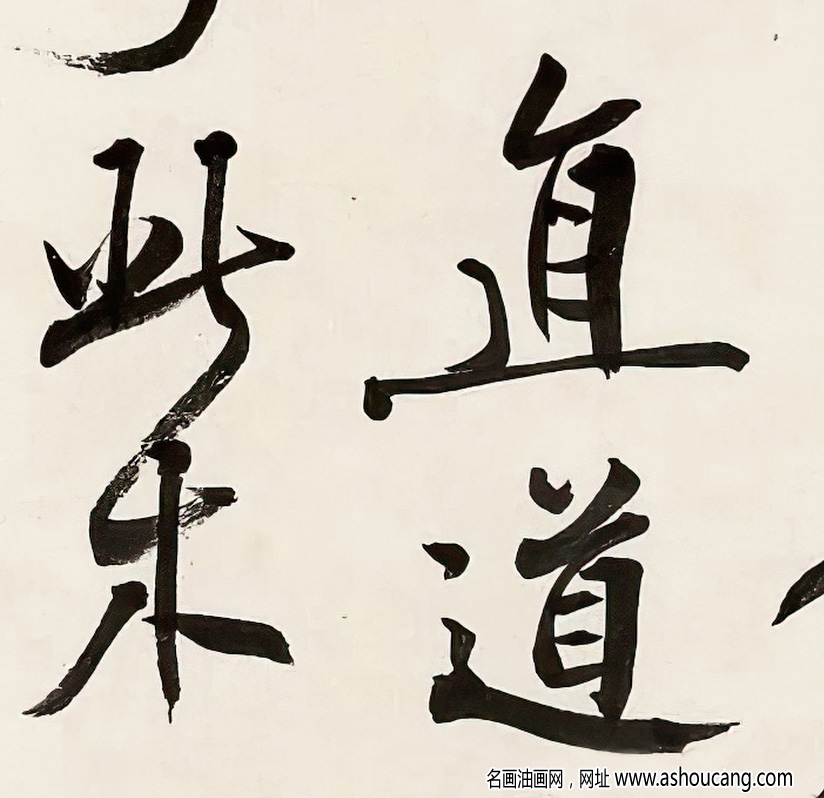 直道
此
名画油画网，网址 www.ashoucang.com